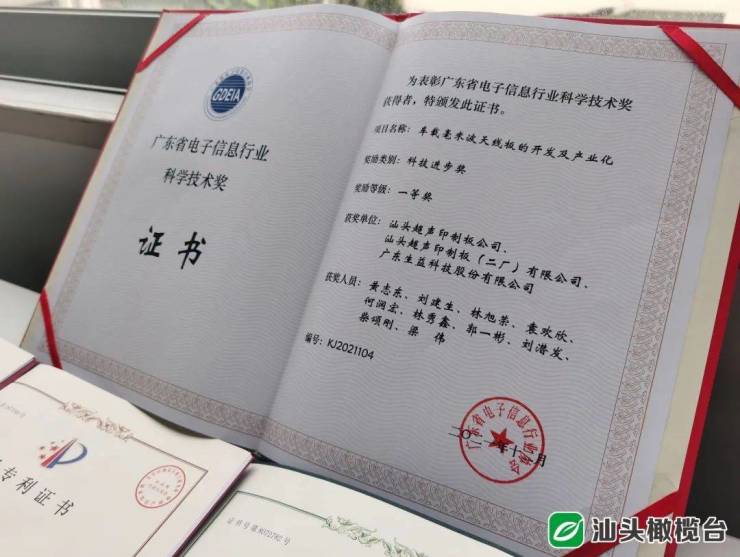 GDEIA
广东省电子信息行业
科学技术奖
证书
为表彰广东省电子信息行业科学技术奖
获得者，特颁发此证书。
项目名称：车载毫米波天线板的开发及产业化
奖励类别：科技进步奖
奖励等级：一等奖
获奖单位：汕头超声印制板公司、
汕头超声印制板（二厂）有限公司、
广东生益科技股份有限公司
获奖人员：黄志东、刘建生、林旭荣、袁欢欣、
何润宏、林秀鑫、郭一彬、刘潜发、
柴颂刚、梁 伟
编号：KJ2021104
广东省电子信息行业协会
专利证书
证书号第
汕头橄榄台